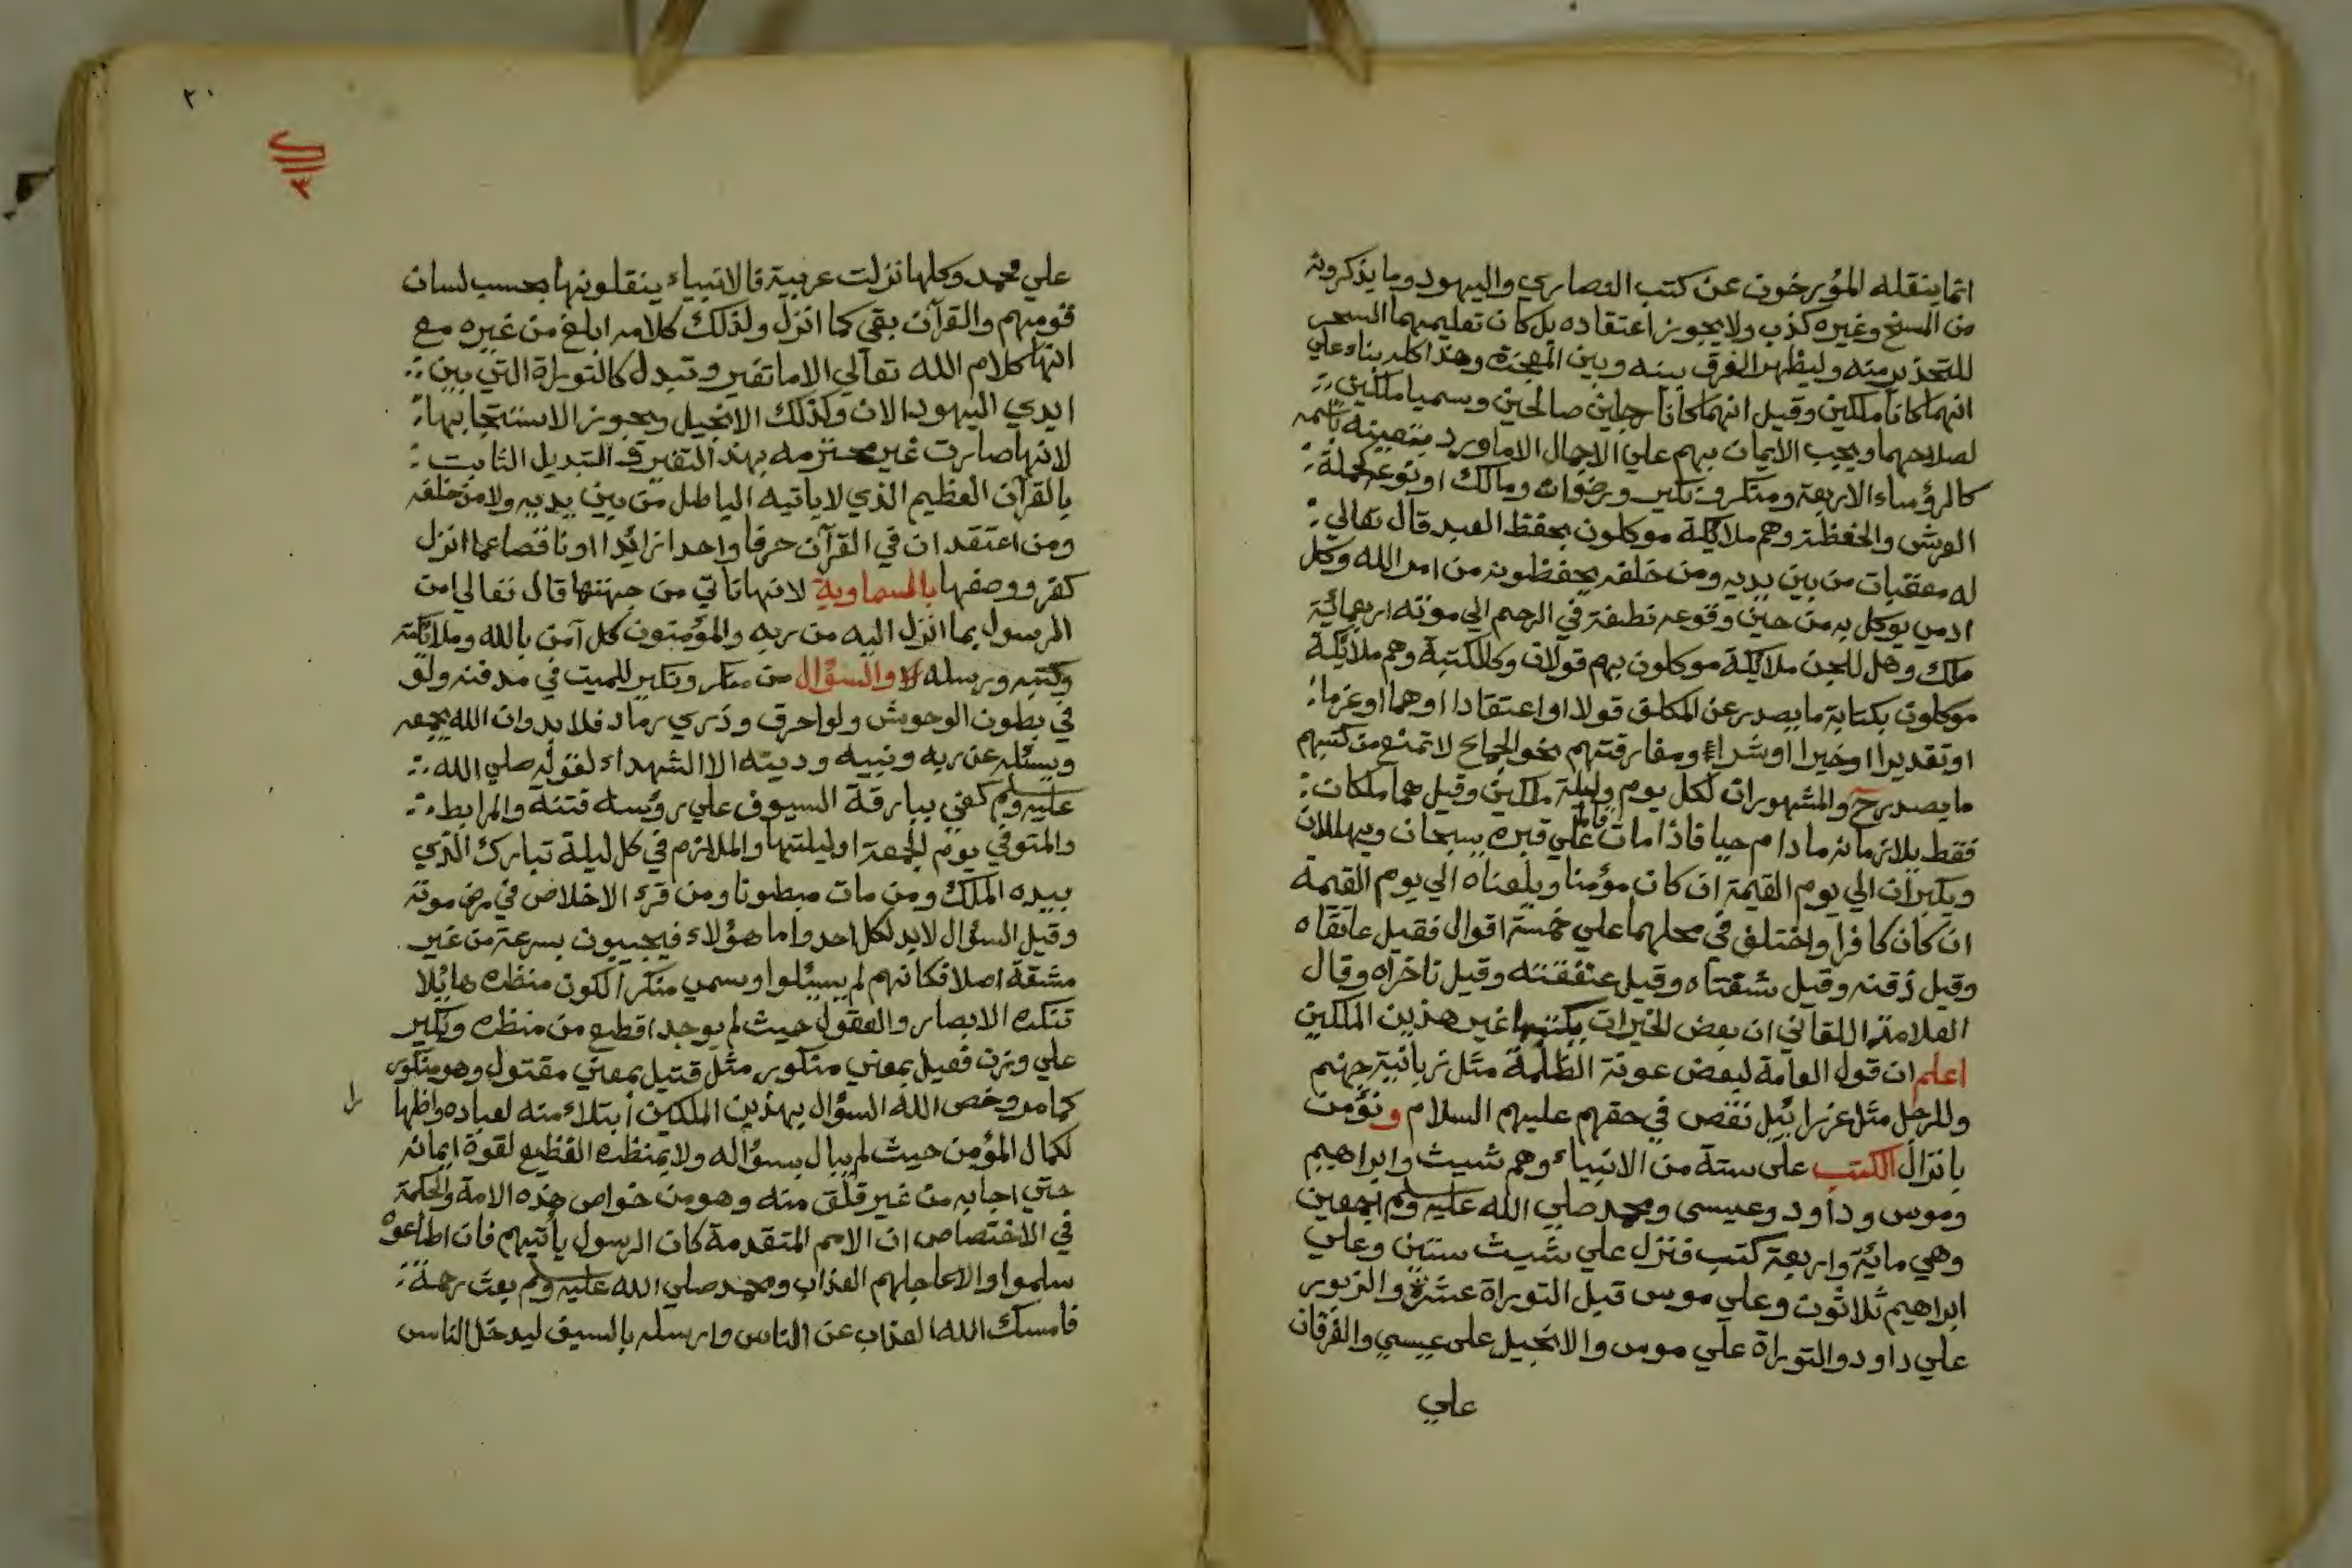 انما ينقله المؤرخون عن كتب النصاري واليهود وما يذكرونه
من المسخ وغيره كذب ولا يجوز اعتقاده بل كان تعليمهما السحر
للتحذير منه وليظهر الفرق بينه وبين المعجزة وهذا كله بناء علي
انهما كانا ملكين وقيل انهما كانا رجلين صالحين وسميا ملكين
لصلاحهما ويجب الايمان بهم علي الاجمال الا ما ورد بتعيينه باسمه
كالرؤساء الاربعة ومنكر ونكير ورضوان ومالك او نوعه كحملة
العرش والحفظة وهم ملائكة موكلون بحفظ العبد قال تعالي
له معقبات من بين يديه ومن خلفه يحفظونه من امر الله وكل
ادمي يوكل به من حين وقوعه نطفة في الرحم الي موته اربعمائة
ملك وهل للجن ملائكة موكلون بهم قولان وكالكتبة وهم ملائكة
موكلون بكتابة ما يصدر عن المكلف قولا او اعتقادا او هما او عزما
او تقديرا او خيرا او شراء ومفارقتهم نحو الجماع لا تمنع من كتبهم
ما يصدر ح والمشهور ان لكل يوم وليلة ملكين وقيل هما ملكان
فقط يلازمانه ما دام حيا فاذا مات قاما علي قبره يسبحان ويهللان
ويكبران الي يوم القيمة ان كان مؤمنا ويلعناه الي يوم القيمة
ان كان كافرا واختلف في محلهما علي خمسة اقوال فقيل عاتقاه
وقيل ذقنه وقيل شفتاه وقيل عنفقته وقيل ناخراه وقال
العلامة اللقاني ان بعض الخيرات يكتبها غير هذين الملكين
اعلم ان قول العامة لبعض عونة الظلمة مثل زبانية جهنم
وللرجل مثل عزرائيل نقص في حقهم عليهم السلام ونؤمن
بانزال الكتب على ستة من الانبياء وهم شيث وابراهيم
وموسى وداود وعيسى ومحمد صلي الله عليه وسلم اجمعين
وهي مائة واربعة كتب فنزل علي شيث ستين وعلي
ابراهيم ثلاثون وعلي موسى قبل التوراة عشرة والزبور
علي داود والتوراة علي موسى والانجيل على عيسي والفرقان
علي
٢٠
علي محمد وكلها نزلت عربية فالانبياء ينقلونها بحسب لسان
قومهم والقرآن بقي كما انزل ولذلك كلامه ابلغ من غيره مع
انها كلام الله تعالي الا ما تغير وتبدل كالتوراة التي بين
ايدي اليهود الان وكذلك الانجيل ويجوز الاستنجا بها
لانها صارت غير محترمه بهذا التغير في التبديل الثابت
بالقرآن العظيم الذي لا ياتيه الباطل من بين يديه ولا من خلفه
ومن اعتقد ان في القرآن حرفا واحدا زائدا او ناقصا عما انزل
كفر ووصفها بالسماوية لانها تاتي من جهتها قال تعالي امن
الرسول بما انزل اليه من ربه والمؤمنون كل آمن بالله وملائكته
وكتبه ورسله والسؤال من منكر ونكير للميت في مدفنه ولو
في بطون الوحوش ولو احرق وذري رماد فلا بد وان الله يجمعه
ويسئله عن ربه ونبيه ودينه الا الشهداء لقوله صلي الله
عليه وسلم كفي ببارقة السيوف علي رؤسه فتنة والمرابط
والمتوفي يوم الجمعة او ليلتها والملازم في كل ليلة تبارك الذي
بيده الملك ومن مات مبطونا ومن قرء الاخلاص في مرض موته
وقيل السؤال لابد لكل احد واما هؤلاء فيجيبون بسرعة من غير
مشقة اصلا فكانهم لم يسئلوا وسمي منكر الكون منظره هائلا
تنكره الابصار والعقول حيث لم يوجد اقطع من منظره ونكير
علي وزن فعيل بمعني منكور مثل قتيل بمعني مقتول وهو منكور
كما مر وخص الله السؤال بهذين الملكين ابتلاء منه لعباده واظهارا
لكمال المؤمن حيث لم يبال بسؤاله ولا بمنظره الفظيع لقوة ايمانه
حتي اجابه من غير قلق منه وهو من خواص هذه الامة والحكمة
في الاختصاص ان الامم المتقدمة كان الرسول يأتيهم فان اطاعوه
سلموا والا عاجلهم العذاب ومحمد صلي الله عليه وسلم بعث رحمة
فامسك الله العذاب عن الناس وارسله بالسيف ليدخل الناس